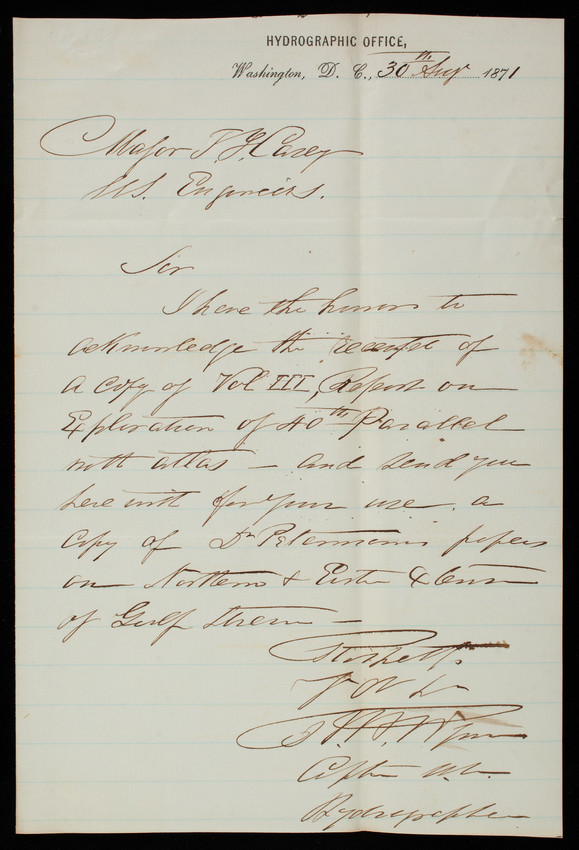 HYDROGRAPHIC OFFICE,
Washington, D. C., 30th Aug 1871
Major T. L. Casey
U.S. Engineers.
Sir
I have the honor to
acknowledge the receipt of
a copy of Vol III, Report on
Exploration of 40th Parallel
with atlas — and send you
herewith for your use a
copy of Dr Petermanns papers
on Northern &
of Gulf Stream —
Respectfy
R. H. Wyman
Captn U.S.N.
Hydrographer